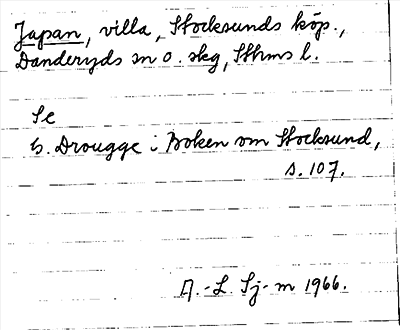 Japan, villa, Stocksunds köp.,
Danderyds sn o. skg, Sthms l.
Se
G. Drougge i Boken om Stocksund,
s. 107.
A.-L. Sj-m 1966.